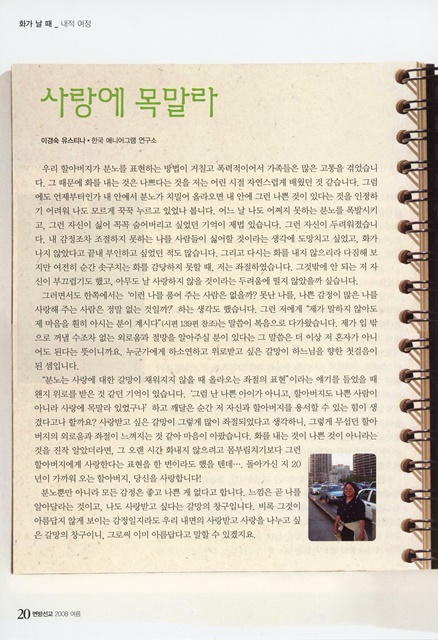 화가 날 때 _ 내적 여정
사랑에 목말라
이경숙 유스티나 • 한국 에니어그램 연구소
우리 할아버지가 분노를 표현하는 방법이 거칠고 폭력적이어서 가족들은 많은 고통을 겪었습니
다. 그 때문에 화를 내는 것은 나쁘다는 것을 저는 어린 시절 자연스럽게 배웠던 것 같습니다. 그럼
에도 언제부터인가 내 안에서 분노가 치밀어 올라오면 내 안에 그런 나쁜 것이 있다는 것을 인정하
기 어려워 나도 모르게 꾹꾹 누르고 있었나 봅니다. 어느 날 나도 어쩌지 못하는 분노를 폭발시키
고, 그런 자신이 싫어 꼭꼭 숨어버리고 싶었던 기억이 제법 있습니다. 그런 자신이 두려워졌습니
다. 내 감정조차 조절하지 못하는 나를 사람들이 싫어할 것이라는 생각에 도망치고 싶었고, 화가
나지 않았다고 끝내 부인하고 싶었던 적도 많습니다. 그리고 다시는 화를 내지 않으리라 다짐해 보
지만 여전히 순간 솟구치는 화를 감당하지 못할 때, 저는 좌절하였습니다. 그것밖에 안 되는 저 자
신이 부끄럽기도 했고, 아무도 날 사랑하지 않을 것이라는 두려움에 떨지 않았을까 싶습니다.
그러면서도 한쪽에서는 ‘이런 나를 품어 주는 사람은 없을까? 못난 나를, 나쁜 감정이 많은 나를
사랑해 주는 사람은 정말 없는 것일까?’ 하는 생각도 했습니다. 그런 저에게 “제가 말하지 않아도
제 마음을 훤히 아시는 분이 계시다”(시편 139편 참조)는 말씀이 복음으로 다가왔습니다. 제가 입 밖
으로 꺼낼 수조차 없는 외로움과 절망을 알아주실 분이 있다는 그 말씀은 더 이상 저 혼자가 아니
어도 된다는 뜻이니까요. 누군가에게 하소연하고 위로받고 싶은 갈망이 하느님을 향한 첫걸음이
된 셈입니다.
“분노는 사랑에 대한 갈망이 채워지지 않을 때 올라오는 좌절의 표현”이라는 얘기를 들었을 때
왠지 위로를 받은 것 같던 기억이 있습니다. ‘그럼 난 나쁜 아이가 아니고, 할아버지도 나쁜 사람이
아니라 사랑에 목말라 있었구나’ 하고 깨달은 순간 저 자신과 할아버지를 용서할 수 있는 힘이 생
겼다고나 할까요? 사랑받고 싶은 갈망이 그렇게 많이 좌절되었다고 생각하니, 그렇게 무섭던 할아
버지의 외로움과 좌절이 느껴지는 것 같아 마음이 아팠습니다. 화를 내는 것이 나쁜 것이 아니라는
것을 진작 알았더라면, 그 오랜 시간 화내지 않으려고 몸부림치기보다 그런
할아버지에게 사랑한다는 표현을 한 번이라도 했을 텐데…. 돌아가신 지 20
년이 가까워 오는 할아버지, 당신을 사랑합니다!
분노뿐만 아니라 모든 감정은 좋고 나쁜 게 없다고 합니다. 느낌은 곧 나를
알아달라는 것이고, 나도 사랑받고 싶다는 갈망의 창구입니다. 비록 그것이
아름답지 않게 보이는 감정일지라도 우리 내면의 사랑받고 사랑을 나누고 싶
은 갈망의 창구이니, 그로써 이미 아름답다고 말할 수 있겠지요.
20 변방선교 2008 여름